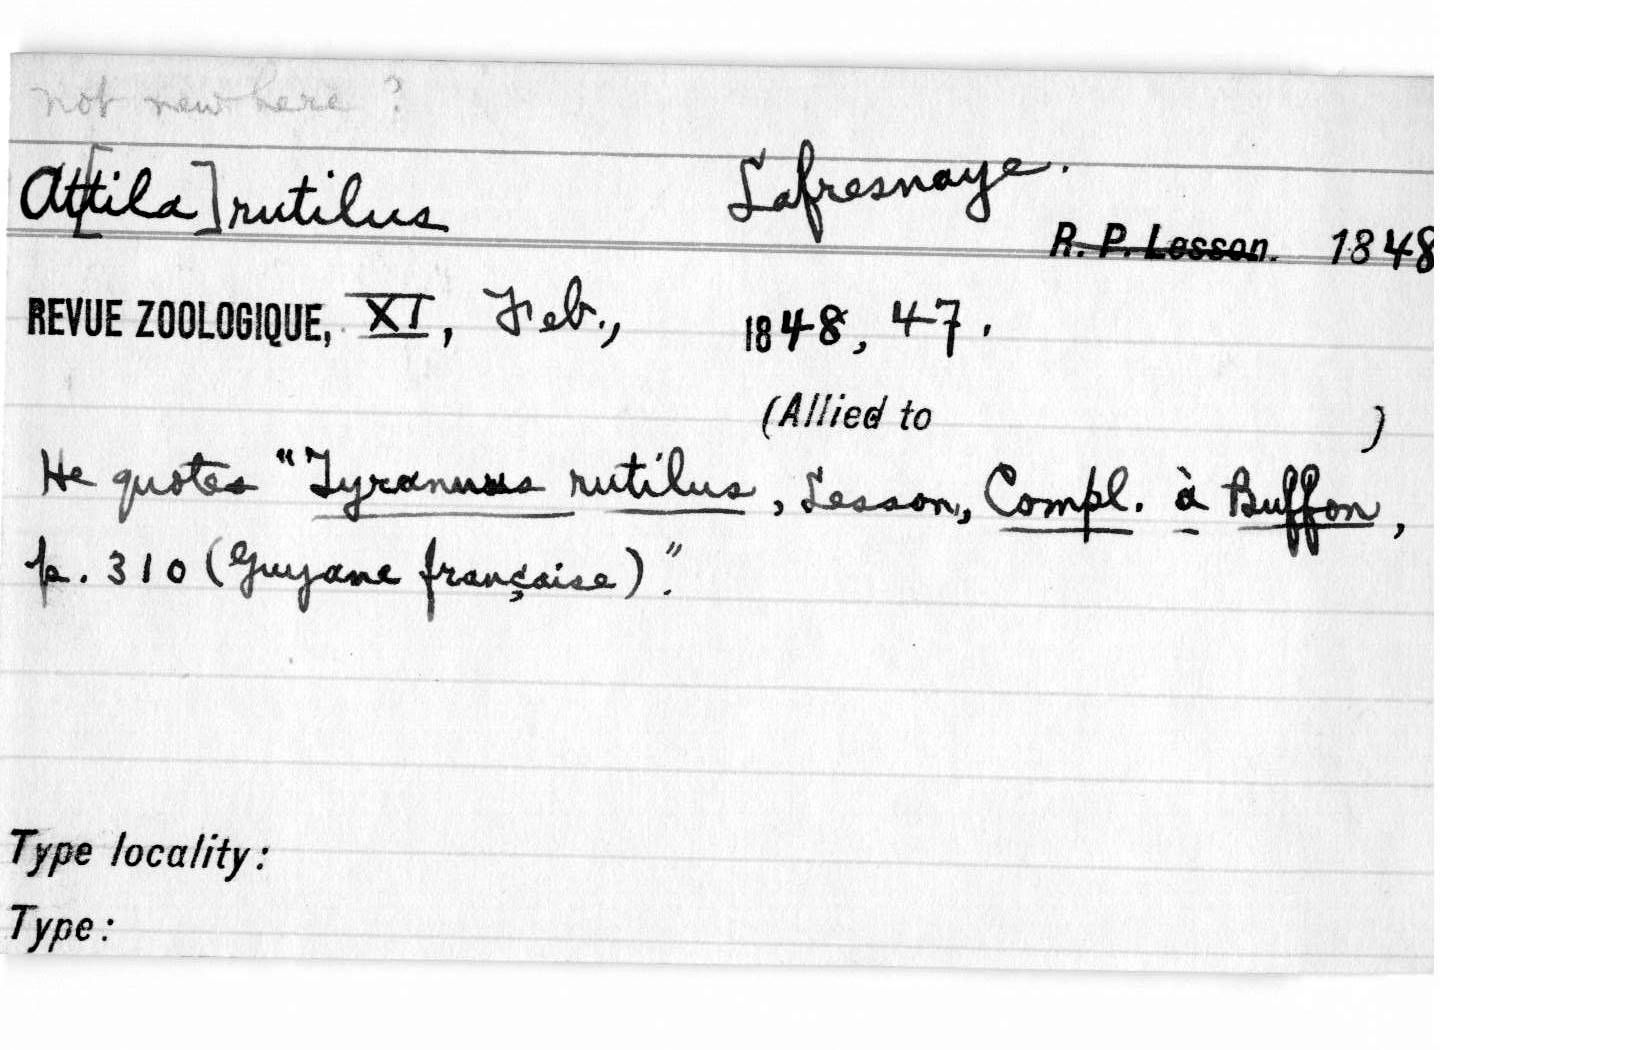 not new here ?
Att[ila] rutilus Lafresnaye.
R. P. Lesson. 1848
REVUE ZOOLOGIQUE, XI, Feb., 1848, 47.
(Allied to )
He quotes "Tyrannus rutilus, Lesson, Compl. à Buffon,
p. 310 (Guyane française)."
Type locality:
Type: